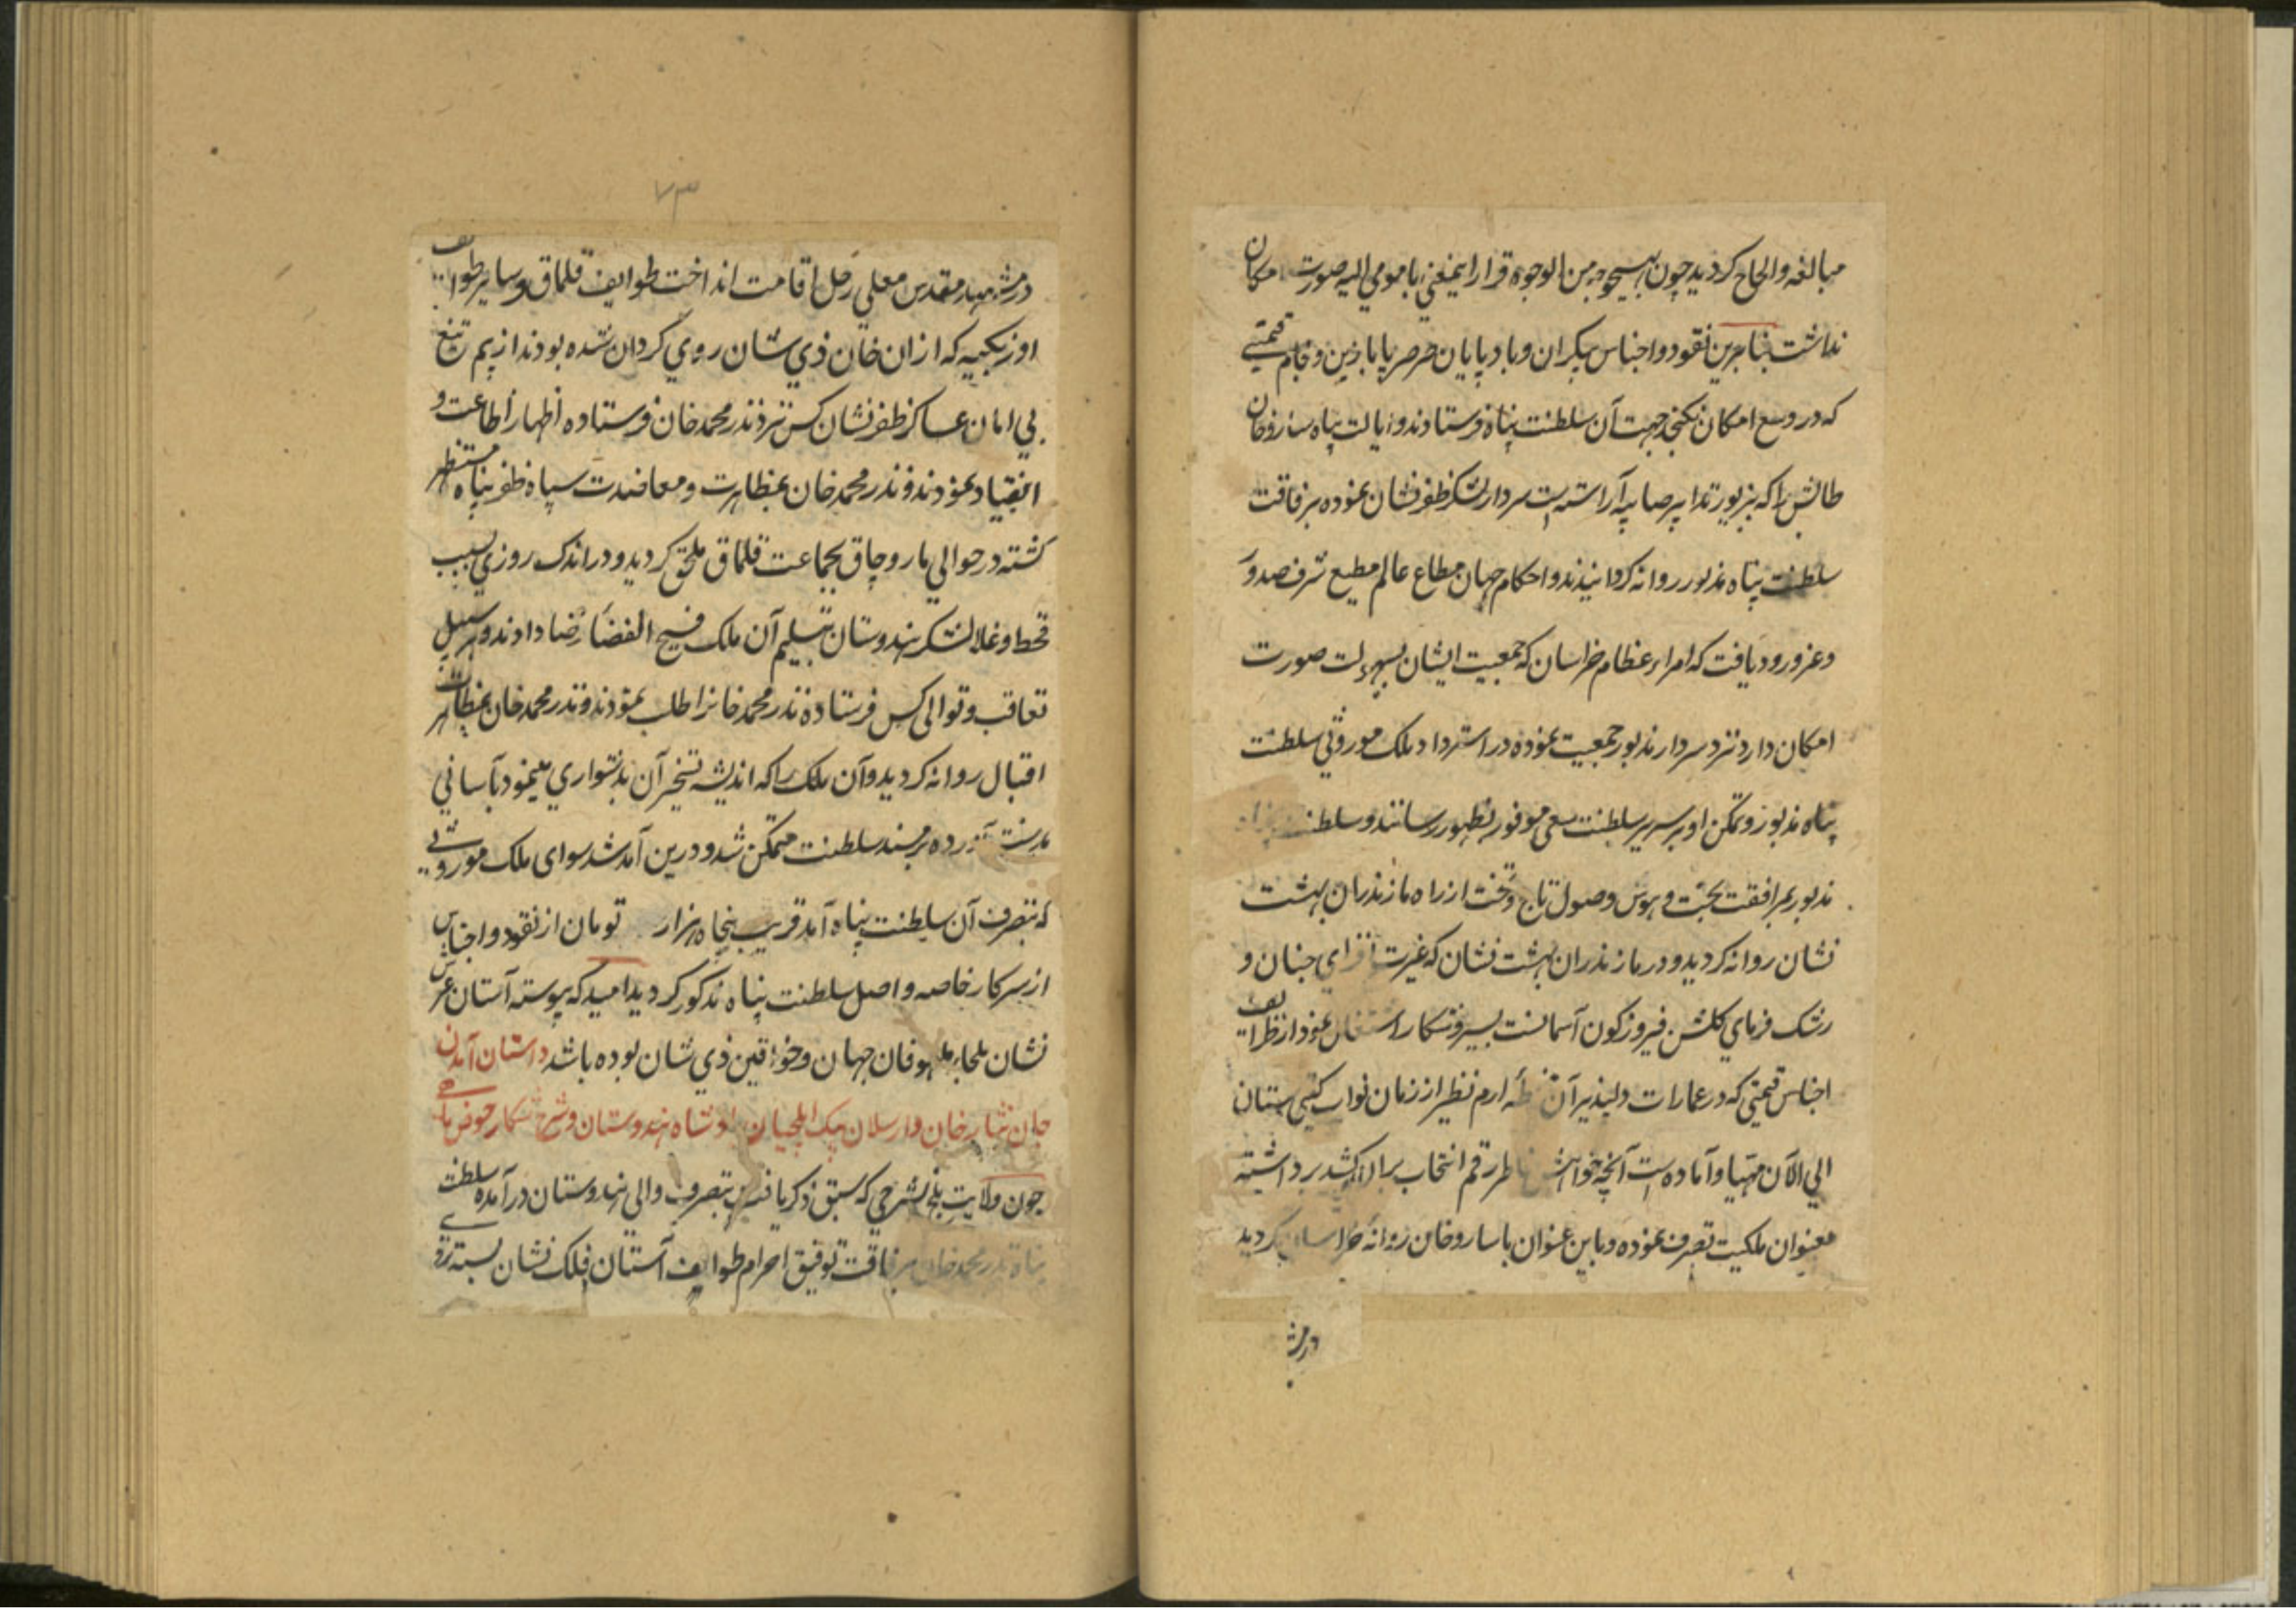 مبالغه والحاح كرديد چون بهيچوجه من الوجوه قرار اينمعني با مومي اليه صورت امكان
نداشت بنابرين نقود و اجناس بيكران و باد پايان صرصر پا با زين و لجام قيمتي
كه در وسع امكان نكنجد جهت آن سلطنت پناه فرستادند و ايالت پناه ساروخان
طالش را كه بزيور تدابير صايبه آراسته است سردار لشكر ظفر نشان نموده برفاقت
سلطنت پناه مذبور روانه كردانيدند و احكام جهان مطاع عالم مطيع شرف صدور
و عز ورود يافت كه امراء عظام خراسان كه جمعيت ايشان بسهولت صورت
امكان دارد نزد سردار مذبور جمعيت نموده در استرداد ملك موروثي سلطنت
پناه مذبور و تمكن او بر سرير سلطنت سعي موفور بظهور رسانند و سلطنت پناه
مذبور بمرافقت بخت و هوس وصول تاج و تخت از راه مازندران بهشت
نشان روانه كرديد و در مازندران بهشت نشان كه غيرت افزاي جنان و
رشك فرماي كلشن فيروزه كون آسمانست بسير و شكار اشتغال نمود از ظرايف
اجناس قيمتي كه در عمارات دلپذير آن خطه ارم نظير از زمان نواب كيتي ستان
الي الآن مهيا و آماده است آنچه خواهش خاطر رقم انتخاب بران كشيد برداشته
بعنوان ملكيت تصرف نموده و باين عنوان با ساروخان روانه خراسان كرديد
در مش
٧٣
در مشهد مقدس معلي رحل اقامت انداخت طوايف قلماق و ساير طوايف
اوزبكيه كه از ان خان ذي شان روي كردان شده بودند از بيم تيغ
بي امان عساكر ظفر نشان كس نزد نذر محمد خان فرستاده اظهار اطاعت و
انقياد نمودند و نذر محمد خان بمظاهرت و معاضدت سپاه ظفر پناه مستظهر
كشته در حوالي ماروچاق بجماعت قلماق ملحق كرديد و در اندك روزي بسبب
قحط و غلا لشكر هندوستان بتسليم آن ملك فسيح الفضا رضا دادند و بر سبيل
تعاقب و توالى كس فرستاده نذر محمد خانرا طلب نمودند و نذر محمد خان بمظاهرت
اقبال روانه كرديد و آن ملك را كه انديشه تسخير آن بدشواري مينمود بآساني
بدست آورده بر مسند سلطنت متمكن شد و درين آمد شد سواى ملك موروثي
كه بتصرف آن سلطنت پناه آمد قريب پنجاه هزار تومان از نقود و اجناس
از سركار خاصه و اصل سلطنت پناه مذكور كرديد اميد كه پيوسته آستان عرش
نشان ملجاء ملهوفان جهان و خواقين ذي شان بوده باشد داستان آمدن
جان نثار خان و ارسلان بيك ايلچيان پادشاه هندوستان و شرح شكار حوض ماهي
چون ولايت بلخ بشرحي كه سبق ذكر يافت بتصرف والي هندوستان درآمده سلطنت
پناه نذر محمد خان برفاقت توفيق احرام طوايف آستان فلك نشان بسته رو